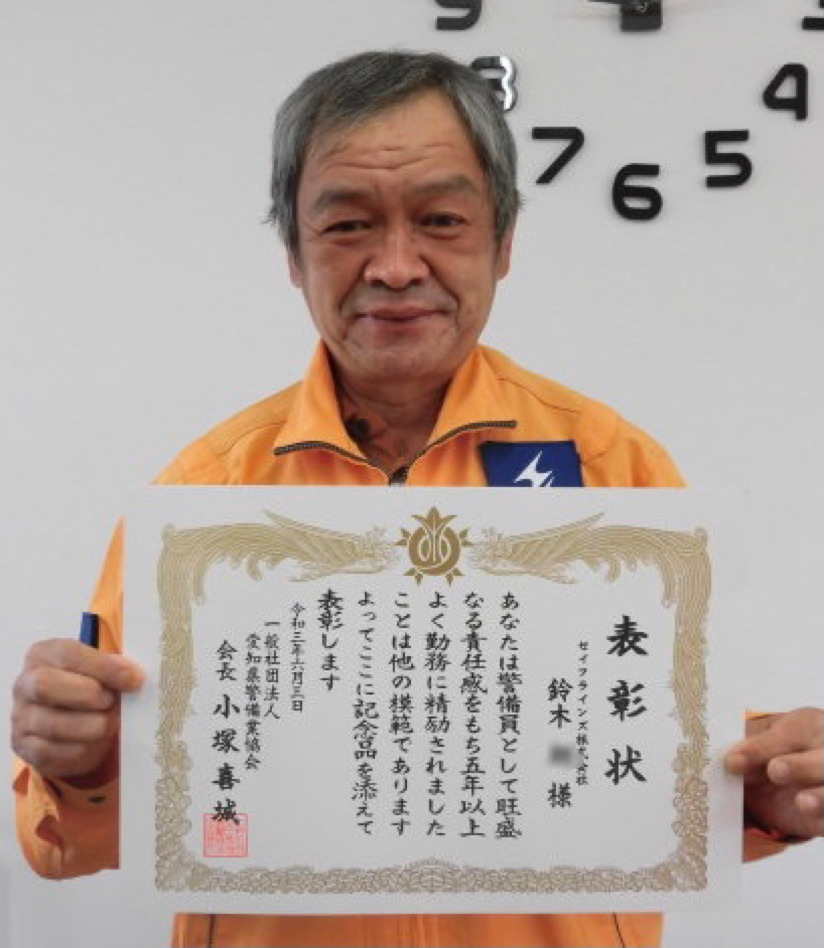 表彰状
セイフラインズ株式会社
鈴木 様
あなたは警備員として旺盛
なる責任感をもち五年以上
よく勤務に精励されました
ことは他の模範であります
よってここに記念品を添えて
表彰します
令和三年六月三日
一般社団法人
愛知県警備業協会
会長 小塚喜城
9
8
7
6
5
4